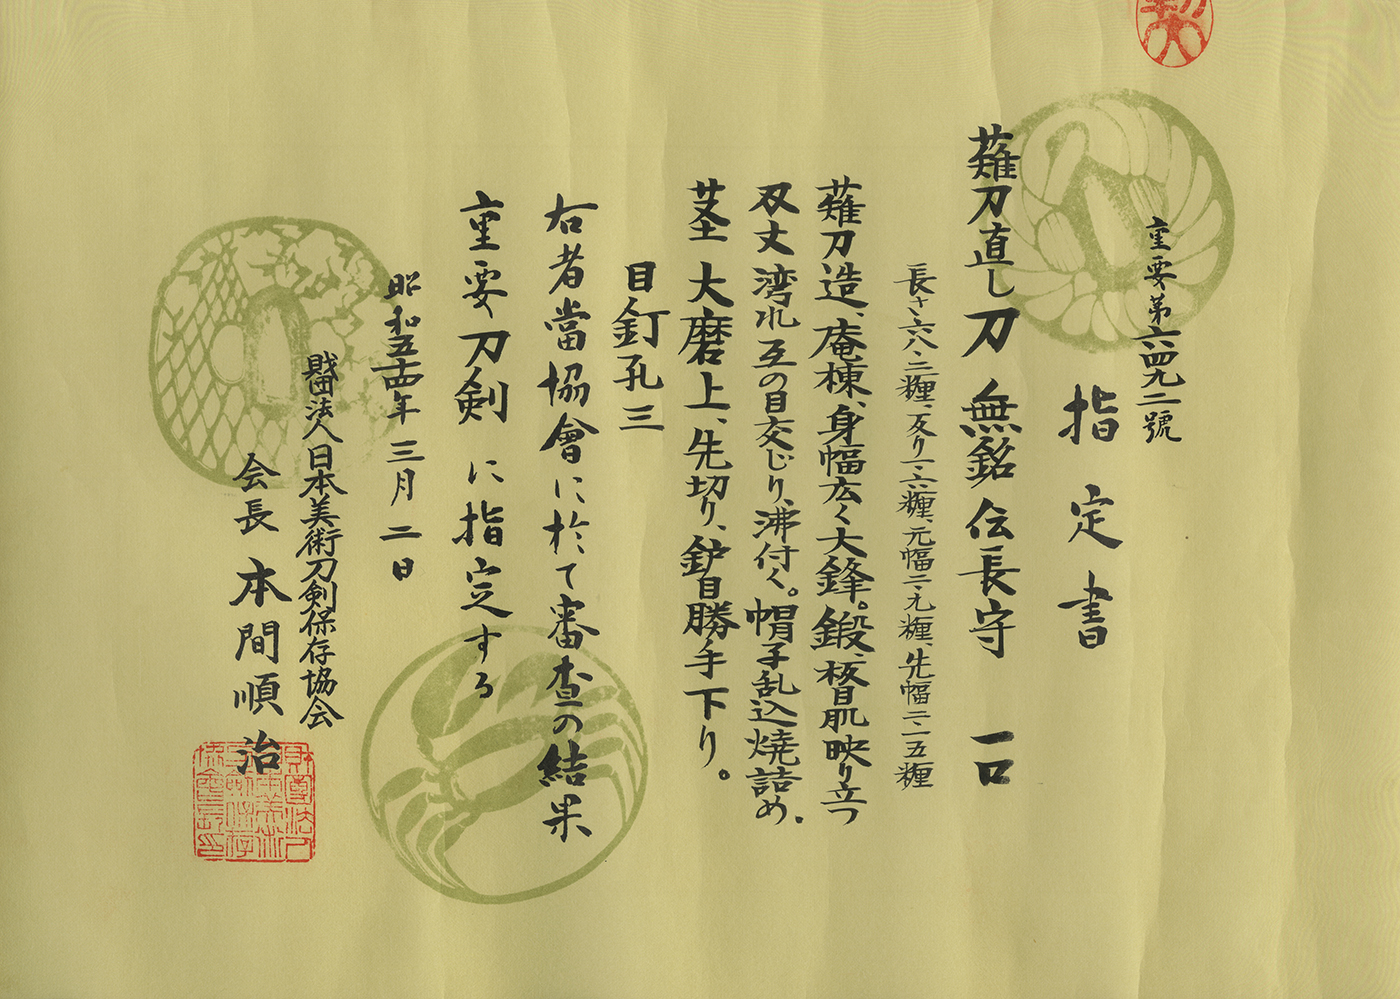 重要第六四九二號
指定書
薙刀直し刀 無銘 伝長守 一口
長さ六八・二糎、反り一・六糎、元幅二・九糎、先幅二・五糎
薙刀造、庵棟、身幅広く大鋒。鍛、板目肌映り立つ
刄文 湾れ互の目交じり、沸付く。帽子乱込焼詰め。
茎 大磨上、先切り、鈩目勝手下り。
目釘孔三
右者當協會に於て審査の結果
重要刀剣に指定する
昭和五十四年三月二日
財団法人日本美術刀剣保存協会
会長 本間順治